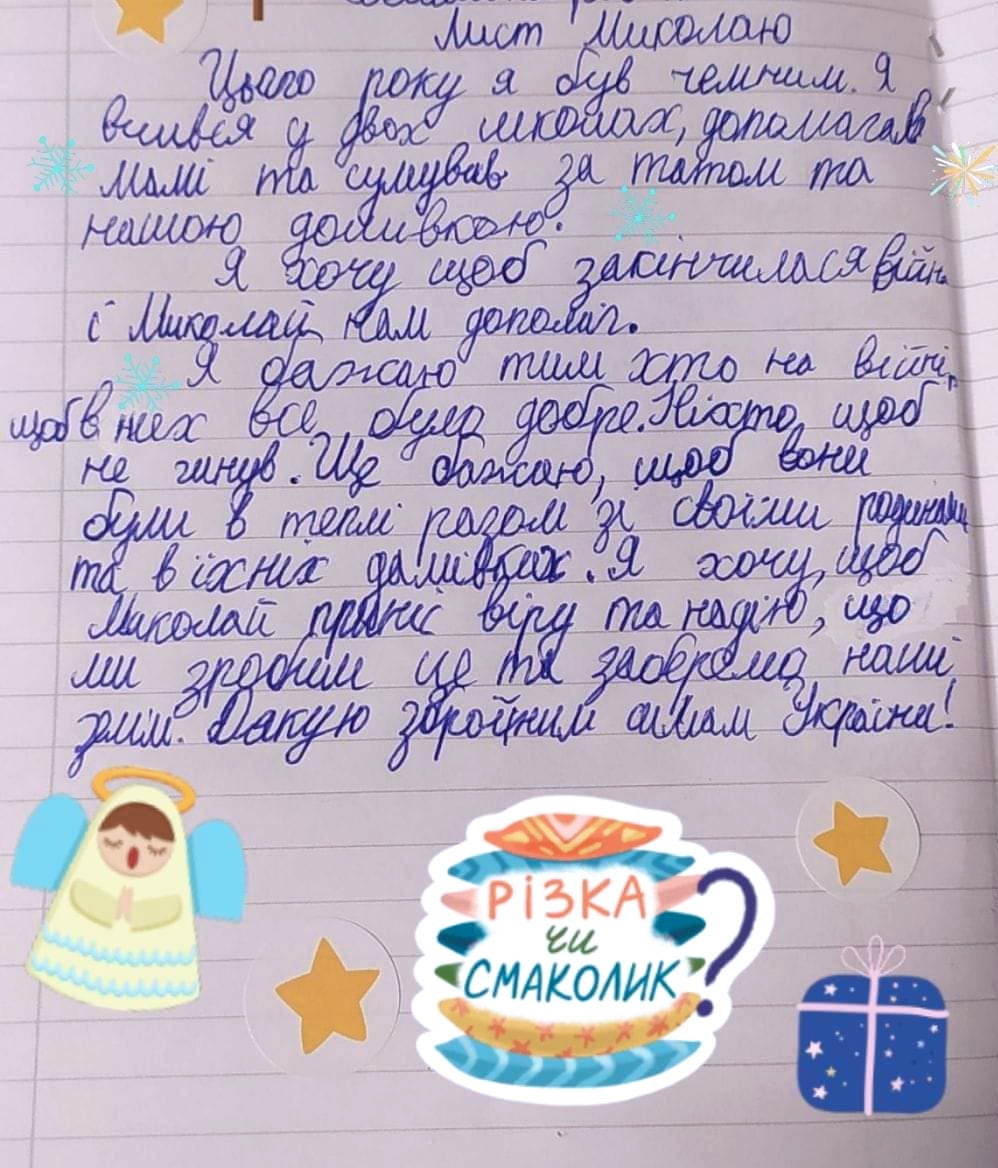 Лист Миколаю
Цього року я був чемним. Я
вчився у двох школах, допомагав
мамі та сумував за татом та
нашою домивкою.
Я хочу щоб закінчилася війна
і Миколай нам допоміг.
Я бажаю тим хто на війні,
щоб в них все було добре. Ніхто щоб
не гинув. Ще бажаю, щоб вони
були в теплі разом зі своїми родинами
та в їхніх домівках. Я хочу, щоб
Миколай приніс віру та надію, що
ми зробим це та заберемо наші
землі. Дякую збройним силам України!
РІЗКА
ЧИ
СМАКОЛИК?